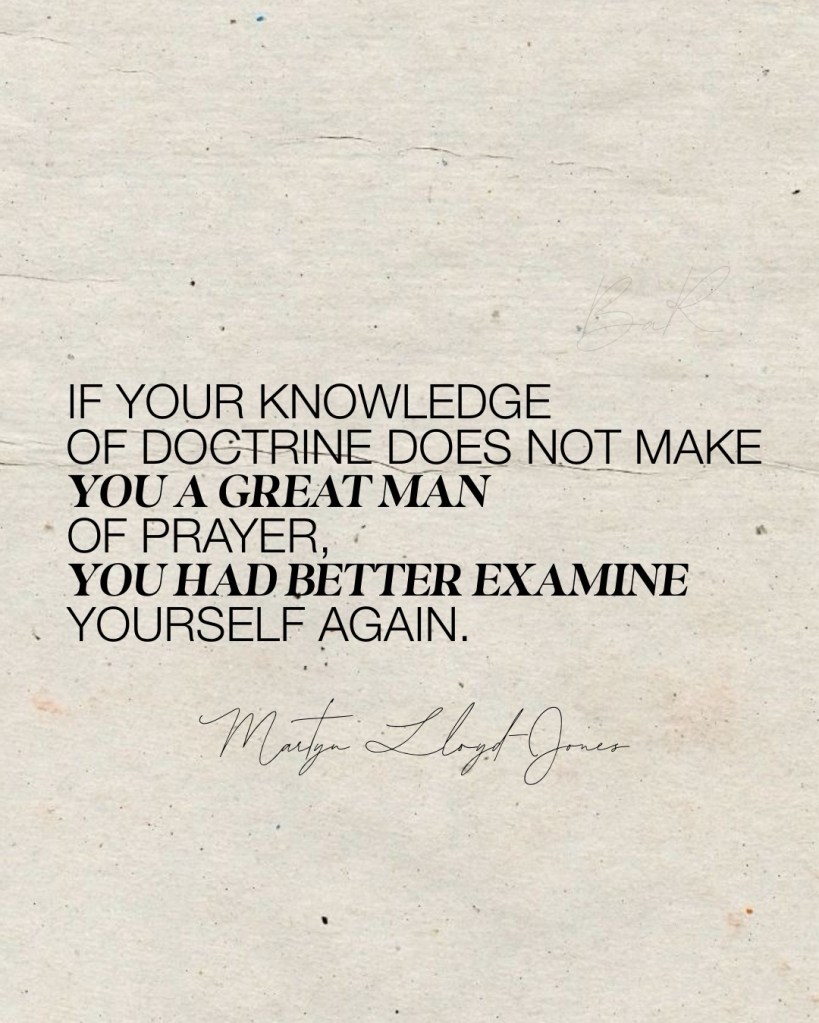 BeR
IF YOUR KNOWLEDGE
OF DOCTRINE DOES NOT MAKE
YOU A GREAT MAN
OF PRAYER,
YOU HAD BETTER EXAMINE
YOURSELF AGAIN.
Martyn Lloyd-Jones